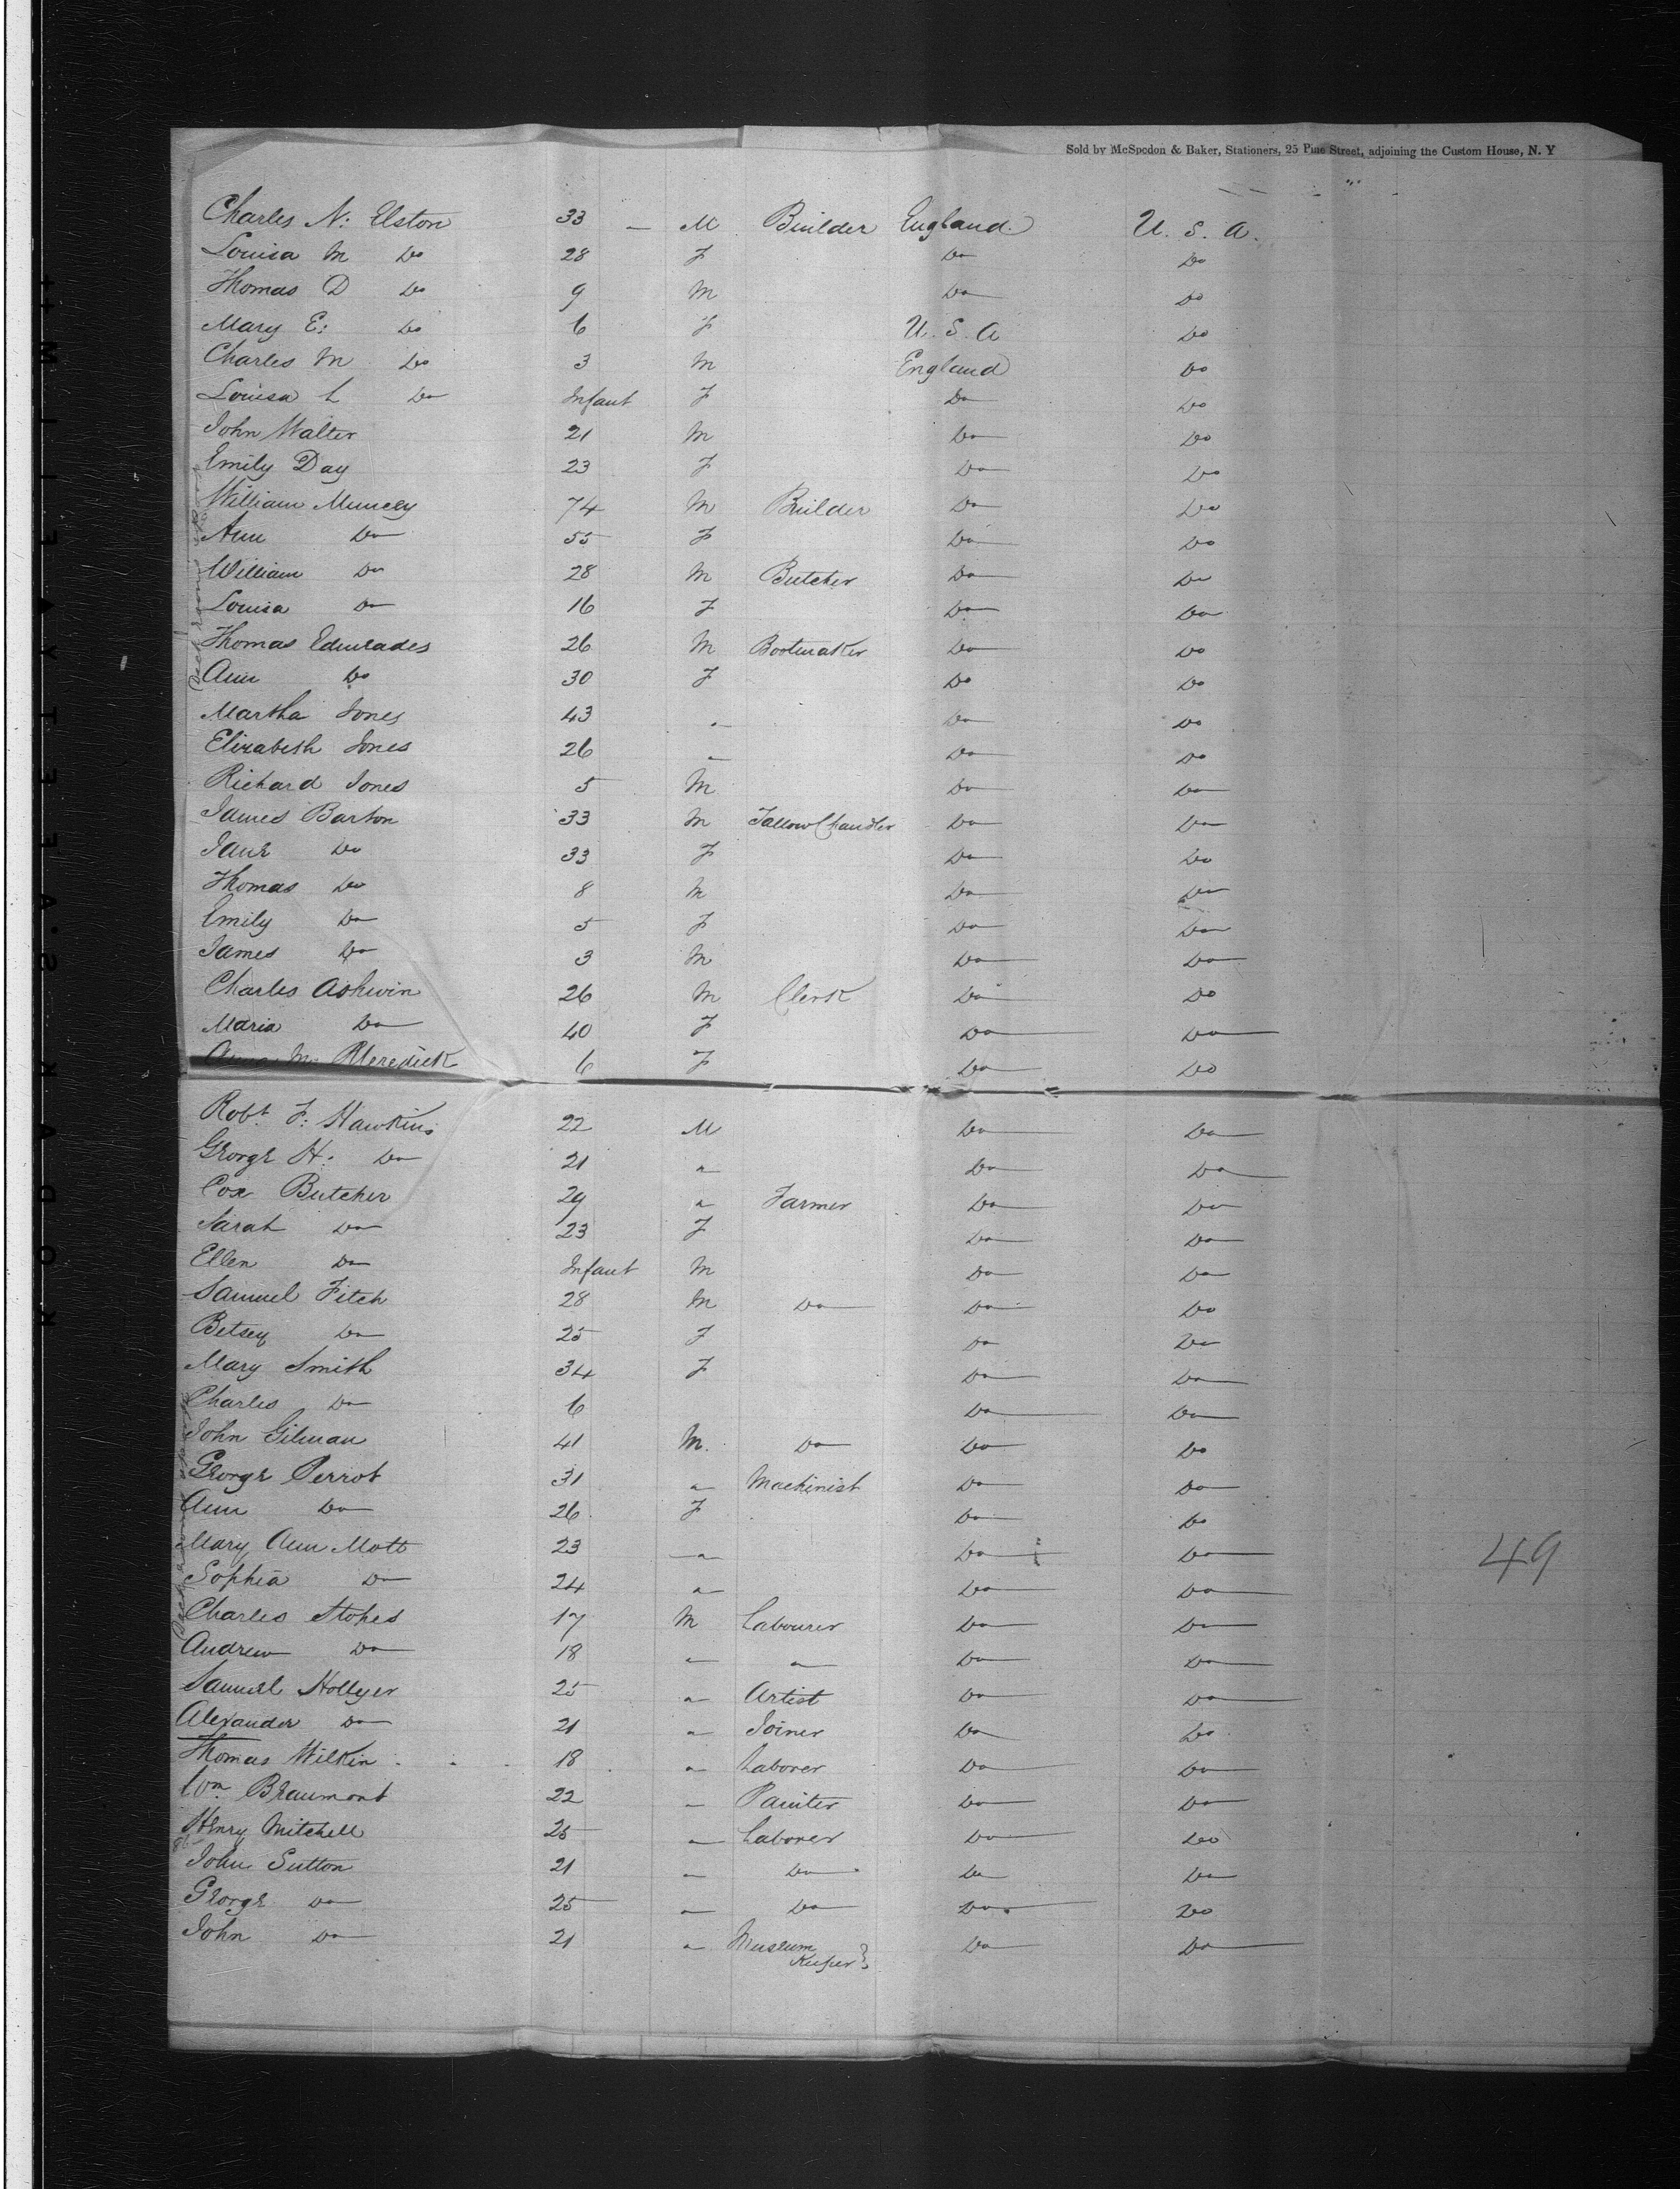 Sold by McSpedon & Baker, Stationers, 25 Pine Street, adjoining the Custom House, N. Y
Charles N: Elston 33 — M Builder England U. S. A.
Louisa M Do 28 F Do Do
Thomas D Do 9 M Do Do
Mary E: Do 6 F U. S. A Do
Charles M Do 3 M England Do
Louisa L Do Infant F Do Do
John Walter 21 M Do Do
Emily Day 23 F Do Do
William Muncey 74 M Builder Do Do
Ann Do 55 F Do Do
William Do 28 M Butcher Do Do
Louisa Do 16 F Do Do
Thomas Edwardes 26 M Bootmaker Do Do
Ann Do 30 F Do Do
Martha Jones 43 " Do Do
Elizabeth Jones 26 " Do Do
Richard Jones 5 M Do Do
James Barton 33 M Tallow Chandler Do Do
Jane Do 33 F Do Do
Thomas Do 8 M Do Do
Emily Do 5 F Do Do
James Do 3 M Do Do
Charles Ashwin 26 M Clerk Do Do
Maria Do 40 F Do Do
M. Meredick 6 F Do Do
Robt. F: Hawkins 22 M Do Do
George H: Do 21 " Do Do
Cox Butcher 29 " Farmer Do Do
Sarah Do 23 F Do Do
Ellen Do Infant M Do Do
Samuel Fitch 28 M Do Do Do
Betsey Do 25 F Do Do
Mary Smith 34 F Do Do
Charles Do 6 Do Do
John Gilman 41 M. Do Do Do
George Perrot 31 " Machinist Do Do
Ann Do 26 F Do Do
Mary Ann Mott 23 " Do Do
Sophia Do 24 " Do Do
49
Charles Stokes 17 M Labourer Do Do
Andrew Do 18 " " Do Do
Samuel Hollyer 25 " Artist Do Do
Alexander Do 21 " Joiner Do Do
Thomas Wilkin 18 " Laborer Do Do
Wm. Beaumont 22 " Painter Do Do
Henry Mitchell 25 " Laborer Do Do
John Sutton 21 " Do Do Do
George Do 25 " Do Do Do
John Do 21 " Museum Do Do
Keeper }
KODAK·SAFETY